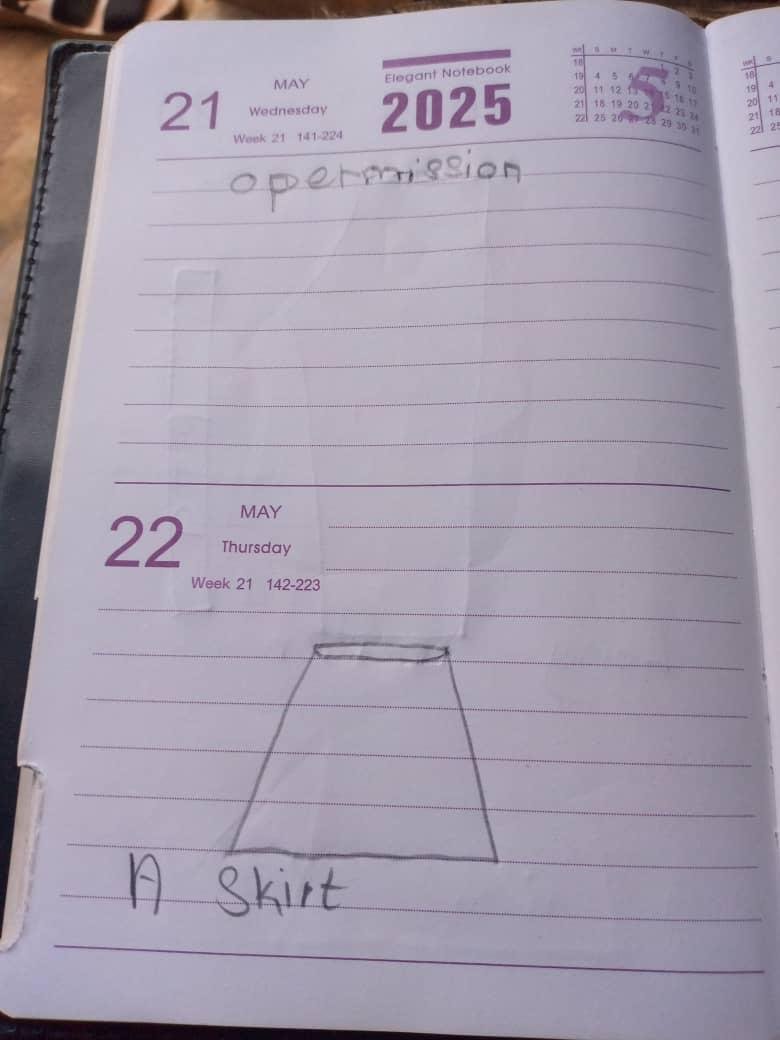 21
MAY
Wednesday
Week 21 141-224
Elegant Notebook
2025
WK S M T W T F S
18 1 2 3
19 4 5 6 7 8 9 10
20 11 12 13 14 15 16 17
21 18 19 20 21 22 23 24
22 25 26 27 28 29 30 31
5
opermission
22
MAY
Thursday
Week 21 142-223
A Skirt
WK S
18
19 4
20 11
21 18
22 25